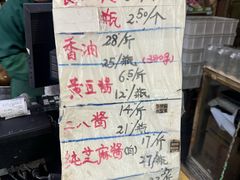 瓶 2.50/个
香油 28/斤
25/瓶
黄豆酱 6.5/斤
12/瓶
二八酱 14/斤
21/瓶
纯芝麻酱(白) 17/斤
27/瓶